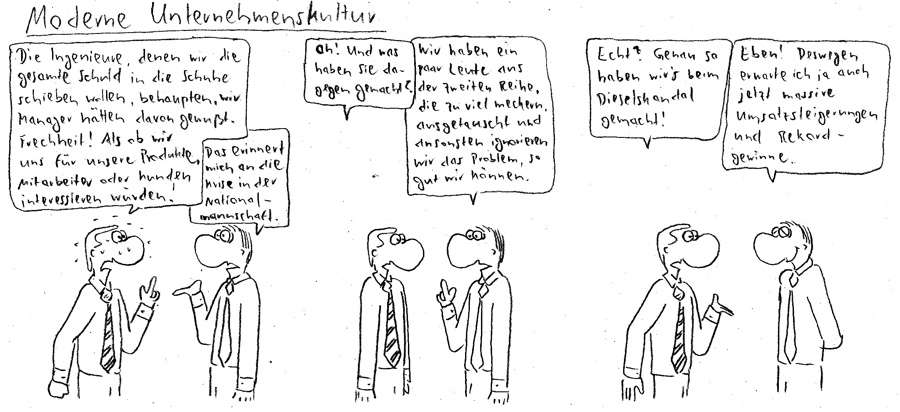 Moderne Unternehmenskultur
Die Ingenieure, denen wir die
gesamte Schuld in die Schuhe
schieben wollen, behaupten, wir
Manager hätten davon gewußt.
Frechheit! Als ob wir
uns für unsere Produkte,
Mitarbeiter oder Kunden
interessieren würden!
Das erinnert
mich an die
Krise in der
National-
mannschaft.
Ah! Und was
haben Sie da-
gegen gemacht?
Wir haben ein
paar Leute aus
der zweiten Reihe,
die zu viel meckern,
ausgetauscht und
ansonsten ignorieren
wir das Problem, so
gut wir können.
Echt? Genau so
haben wir's beim
Dieselskandal
gemacht!
Eben! Deswegen
erwarte ich ja auch
jetzt massive
Umsatzsteigerungen
und Rekord-
gewinne.